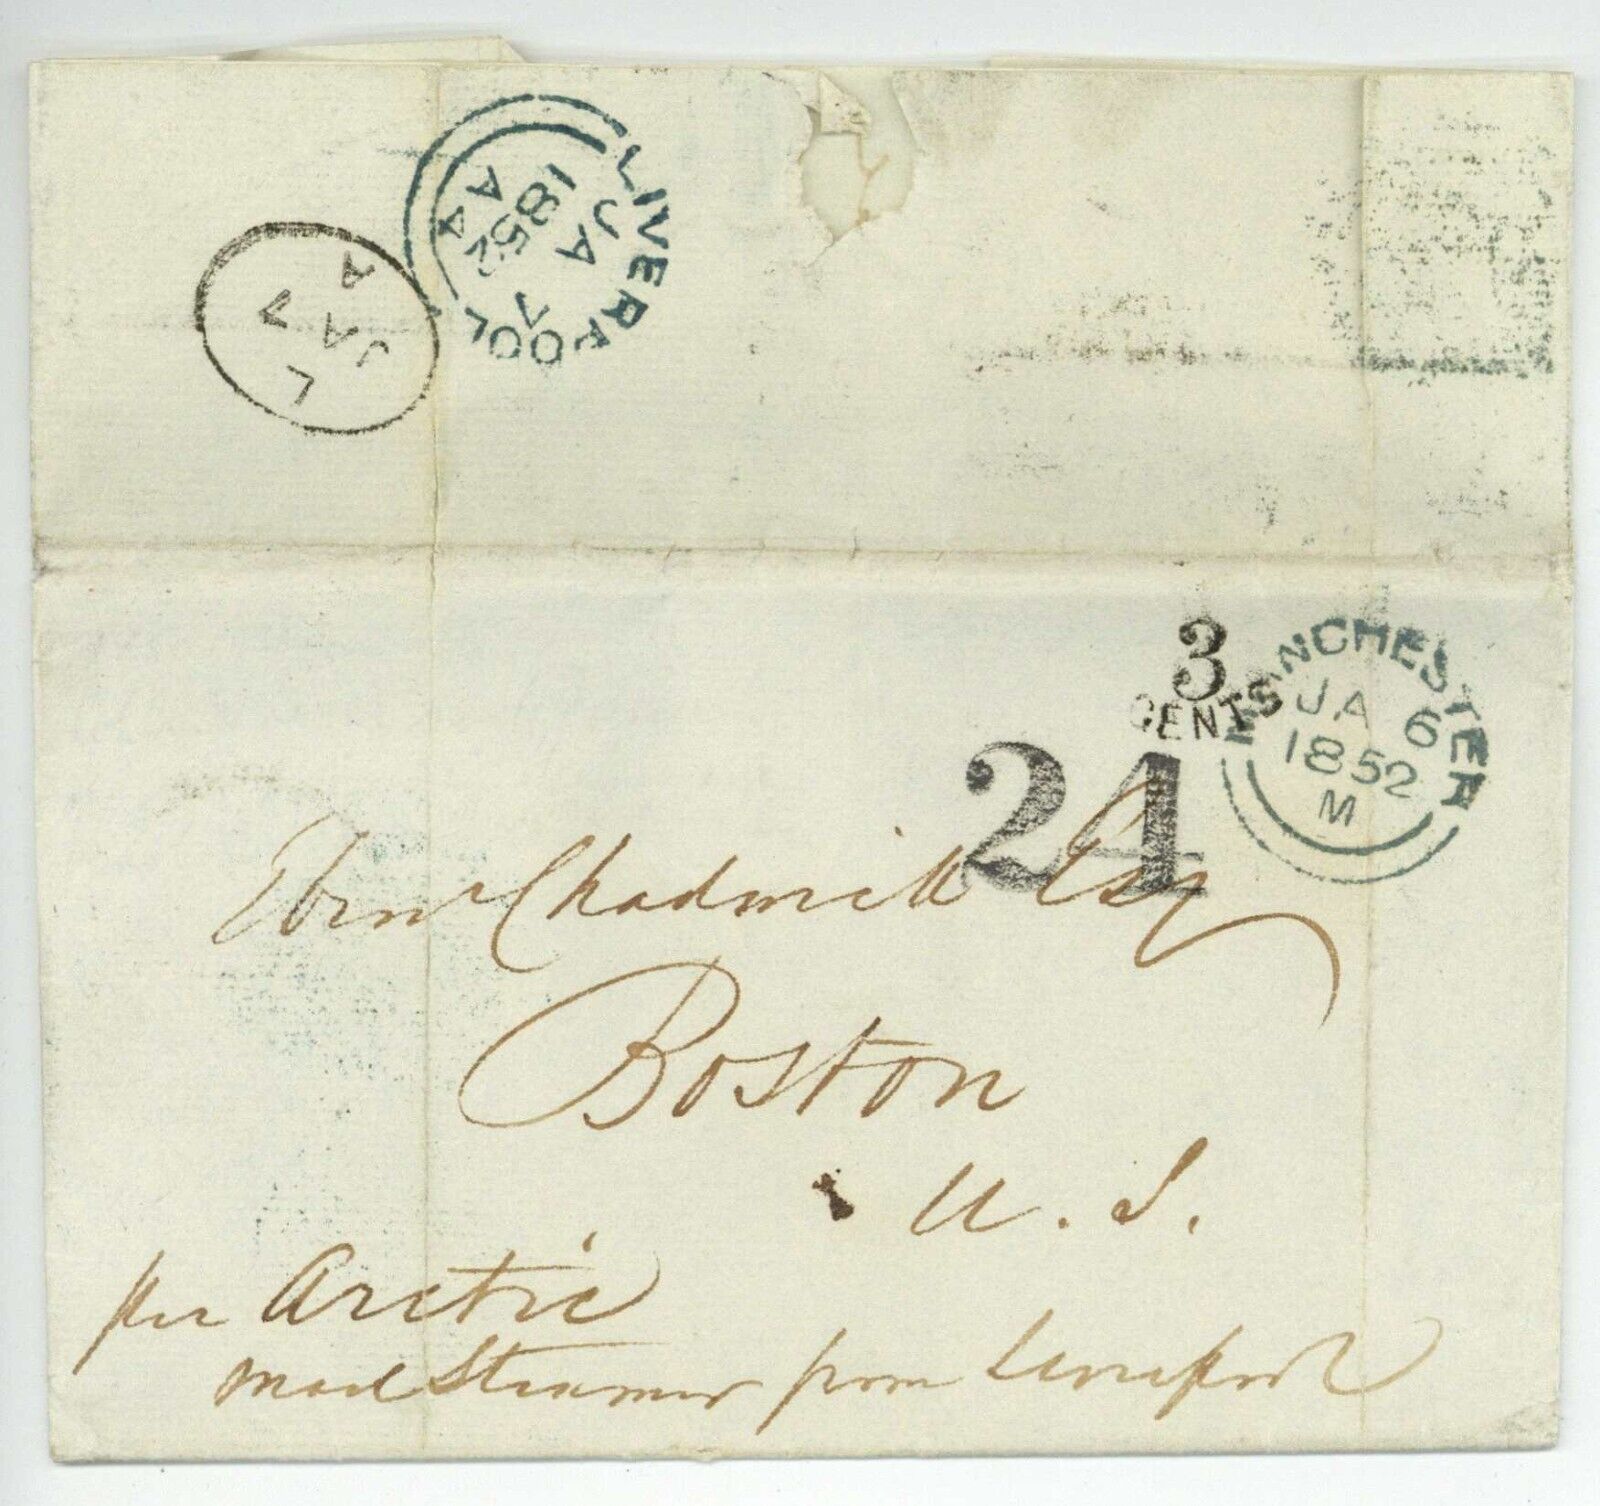 LIVERPOOL
JA 7
1852
A 4
L
JA 7
A
3
CENTS
24
MANCHESTER
JA 6
1852
M
Ebenr Chadwick Esq
Boston
U. S.
per Arctic
mail Steamer from Liverpool